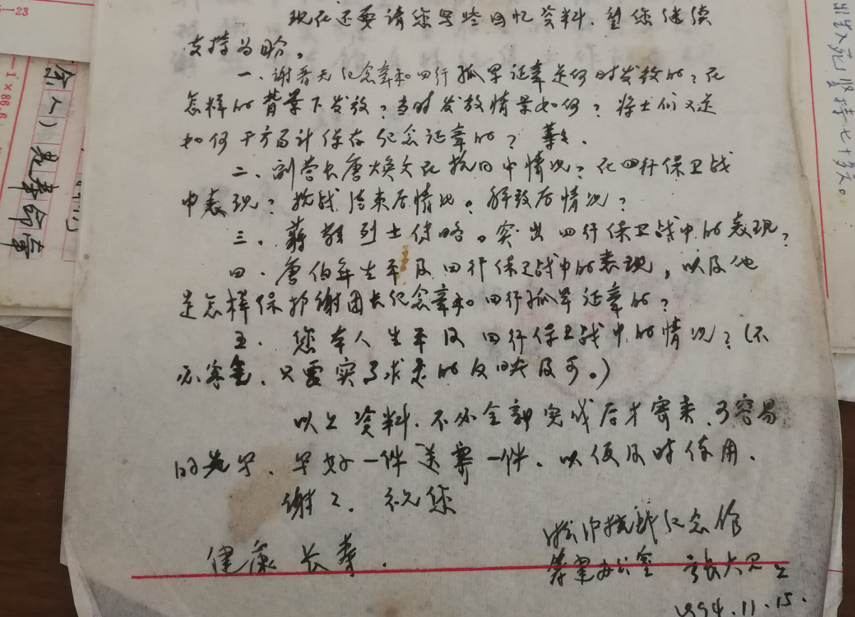 现在还要请您写些回忆资料，望您继续
支持为盼。
一、谢晋元纪念章和四行孤军证章是何时发放的？在
怎样的背景下发放？当时发放情景如何？将士们又是
如何千方百计保存纪念证章的？
二、副营长唐焕文在抗日中情况？在四行保卫战
中表现？抗战结束后情况。解放后情况？
三、蒋敬烈士传略。突出四行保卫战中的表现？
四、唐伯年生平及四行保卫战中的表现，以及他
是怎样保护谢团长纪念章和四行孤军证章的？
五、您本人生平及四行保卫战中的情况？（不
必客气，只要实事求是的反映及可。）
以上资料，不必全部完成后才寄来，可容易
的先写，写好一件送寄一件，以便及时使用。
谢之，祝您
健康长寿。
淞沪抗战纪念馆
筹建办公室
1994.11.15.
出生入死，坚持七十多天。
-23
-1×86.6
余人）